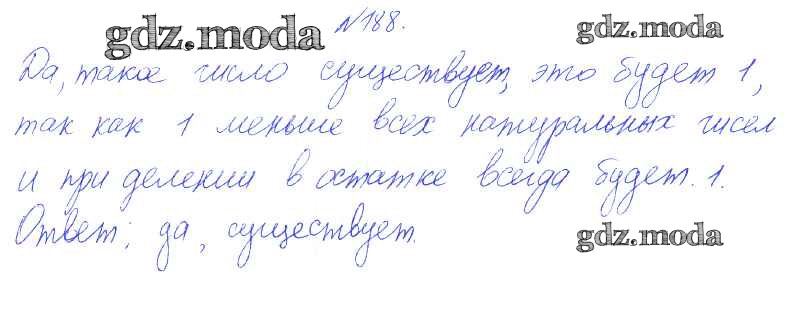 gdz.moda №188. gdz.moda
Да, такое число существует, это будет 1,
так как 1 меньше всех натуральных чисел
и при делении в остатке всегда будет 1.
Ответ: да, существует.
gdz.moda